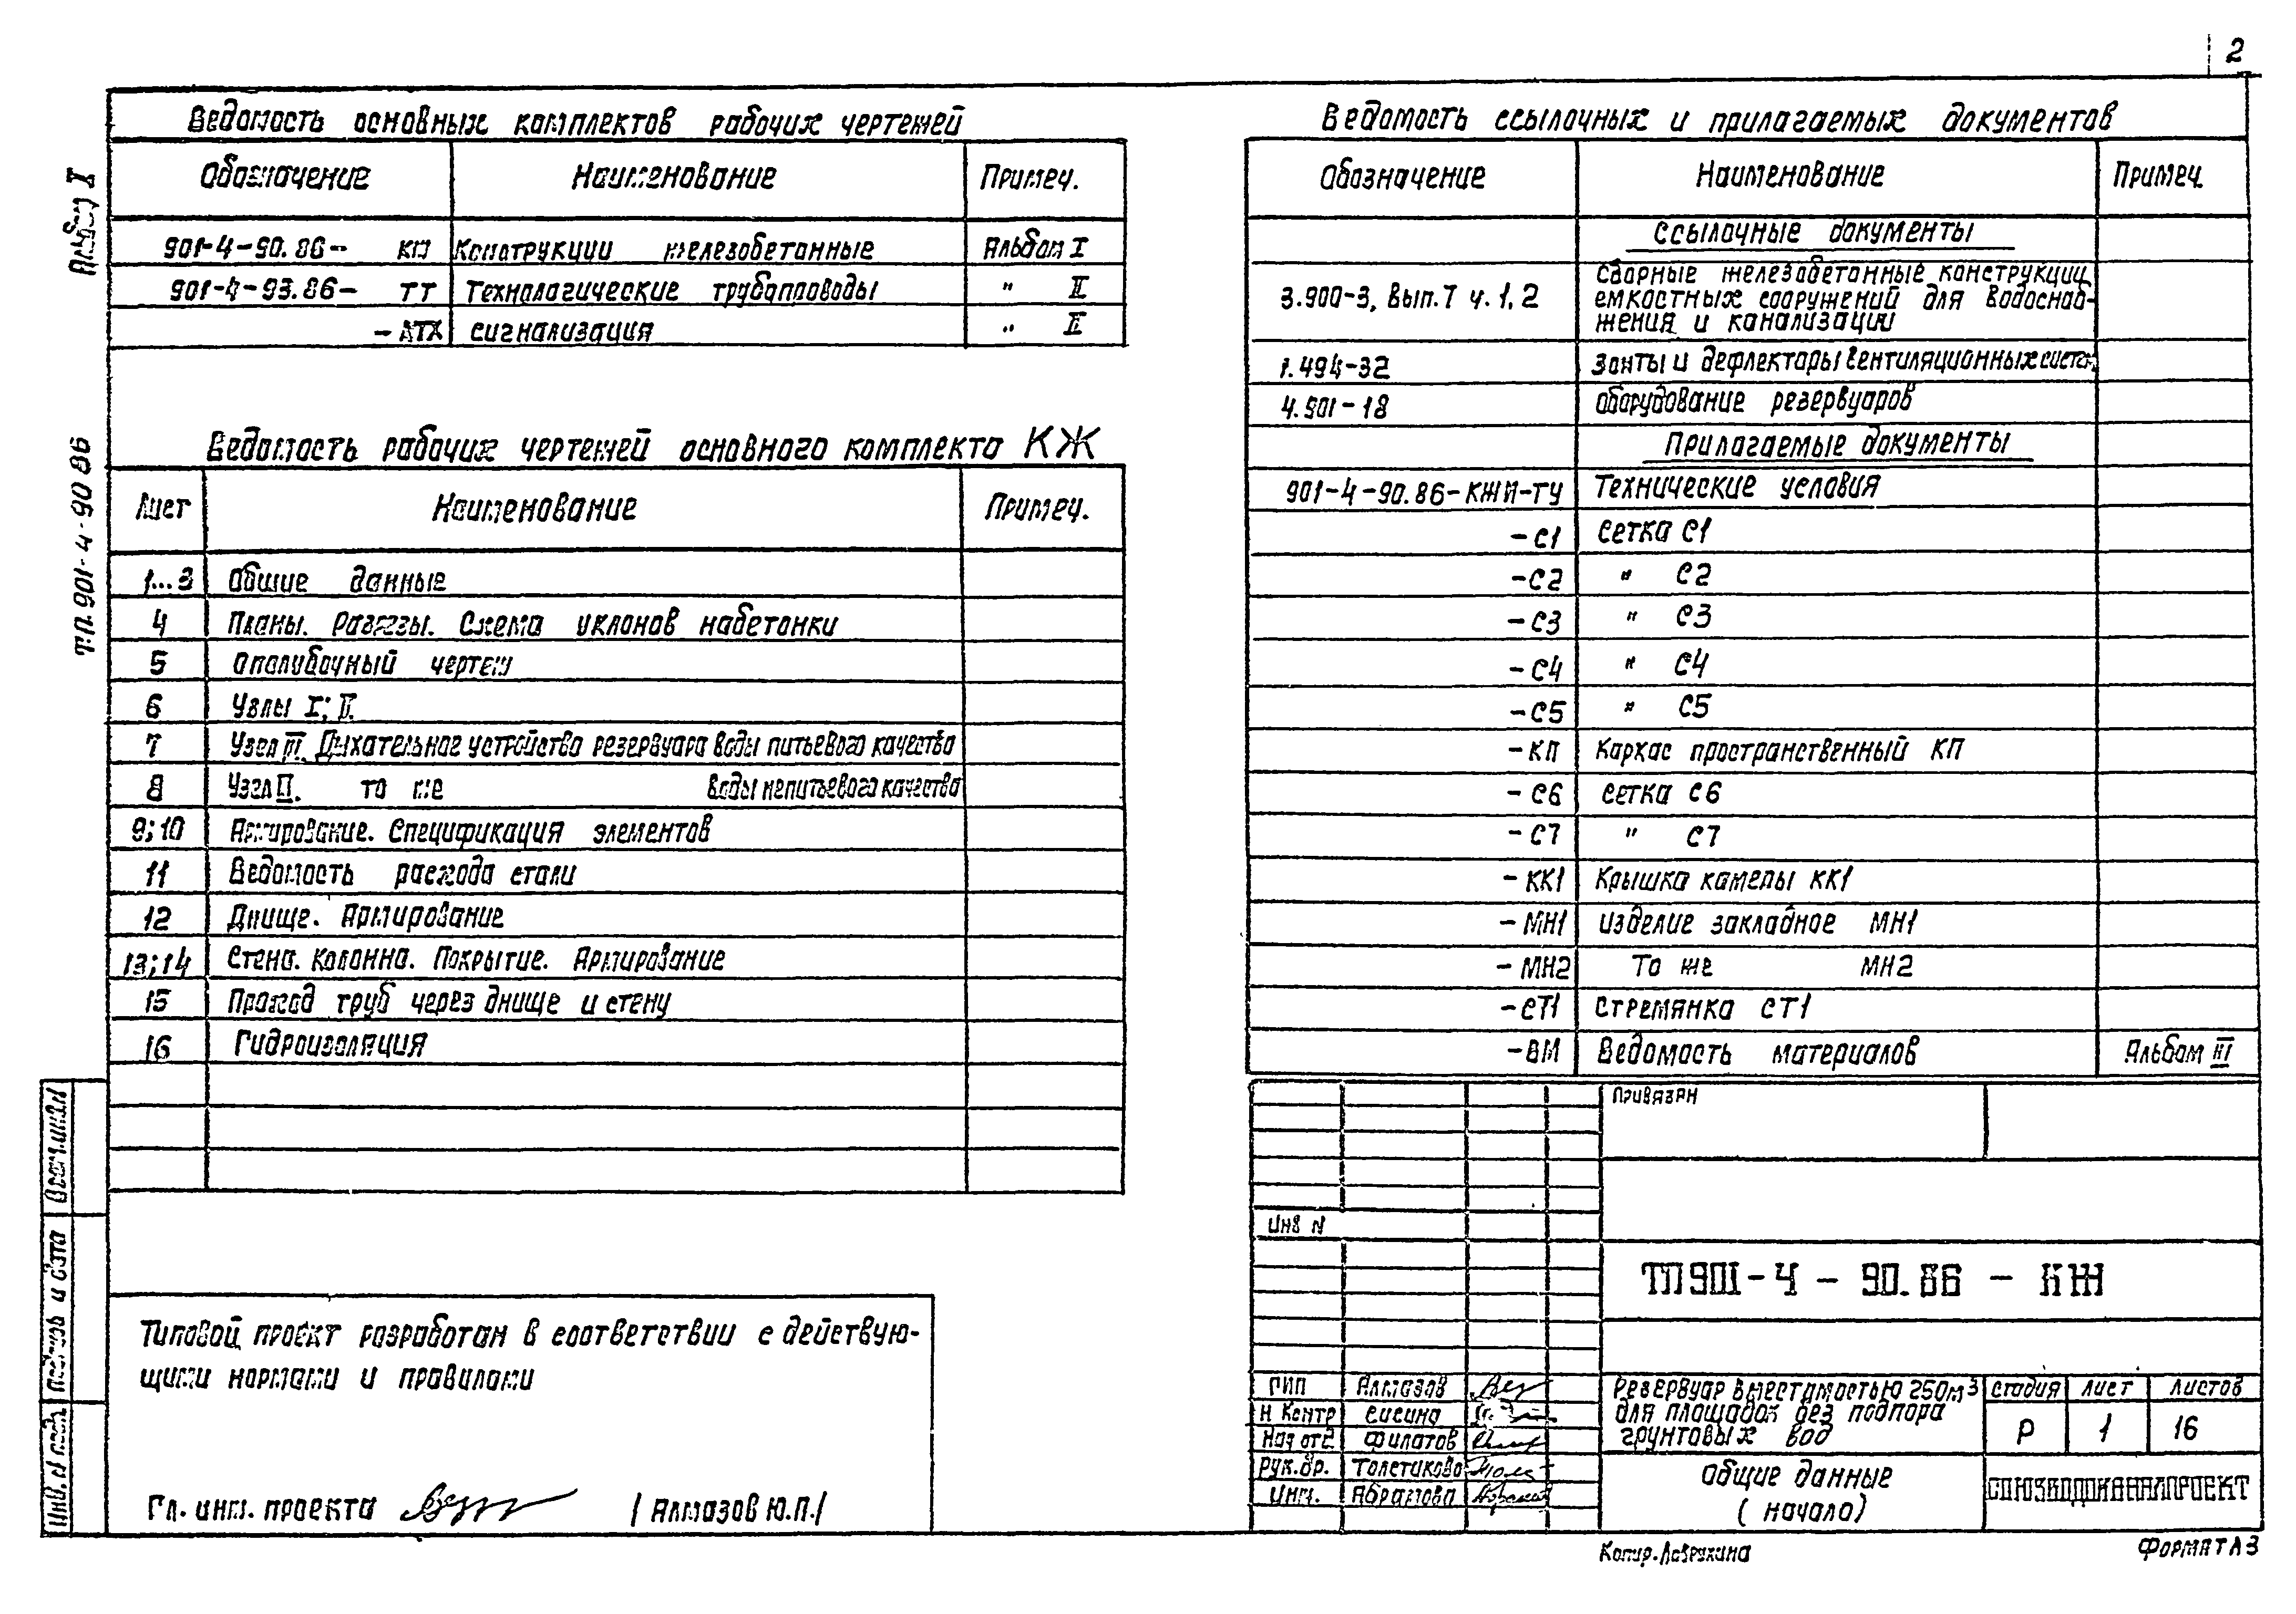 2
Альбом I
Т.П. 901-4-90 86
Ведомость основных комплектов рабочих чертежей
Обозначение Наименование Примеч.
901-4-90.86- КЖ Конструкции железобетонные Альбом I
901-4-93.86- ТТ Технологические трубопроводы " II
-АТХ Сигнализация " II
Ведомость рабочих чертежей основного комплекта КЖ
Лист Наименование Примеч.
1...3 Общие данные
4 Планы. Разрезы. Схема уклонов набетонки
5 Опалубочный чертеж
6 Узлы I; II.
7 Узел III. Дыхательное устройство резервуара воды питьевого качества
8 Узел II. то же воды непитьевого качества
9; 10 Армирование. Спецификация элементов
11 Ведомость расхода стали
12 Днище. Армирование
13; 14 Стена. Колонна. Покрытие. Армирование
15 Проход труб через днище и стену
16 Гидроизоляция
Типовой проект разработан в соответствии с действую-
щими нормами и правилами
Гл. инж. проекта /Алмазов Ю.П./
Ведомость ссылочных и прилагаемых документов
Обозначение Наименование Примеч.
Ссылочные документы
3.900-3, Вып.7 ч.1,2 Сборные железобетонные конструкции
емкостных сооружений для водоснаб-
жения и канализации
1.494-32 Зонты и дефлекторы вентиляционных систем
4.901-18 Оборудование резервуаров
Прилагаемые документы
901-4-90.86-КЖИ-ТУ Технические условия
-С1 Сетка С1
-С2 " С2
-С3 " С3
-С4 " С4
-С5 " С5
-КП Каркас пространственный КП
-С6 Сетка С6
-С7 " С7
-КК1 Крышка камеры КК1
-МН1 Изделие закладное МН1
-МН2 То же МН2
-СТ1 Стремянка СТ1
-ВМ Ведомость материалов Альбом III
Привязан
Инв N
ТП 901-4-90.86-КЖ
ГИП Алмазов
Н Контр Сисина
Нач отд. Филатов
Рук.бр. Толстикова
Инж. Абрамова
Резервуар вместимостью 250м³
для площадок без подпора
грунтовых вод
Стадия Лист Листов
Р 1 16
Общие данные
(начало)
СОЮЗВОДОКАНАЛПРОЕКТ
Формат А3
Взам.инв.N
Подпись и дата
Инв. N подл.